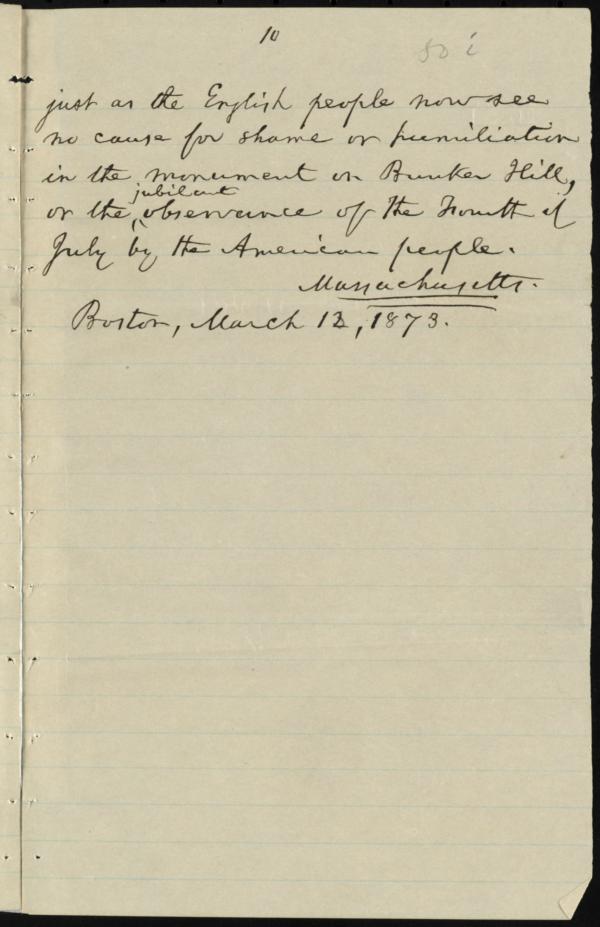 10
80 i
just as the English people now see
no cause for shame or humiliation
in the monument on Bunker Hill,
jubilant
or the ‸ observance of the Fourth of
July by the American people.
Massachusetts.
Boston, March 12, 1873.